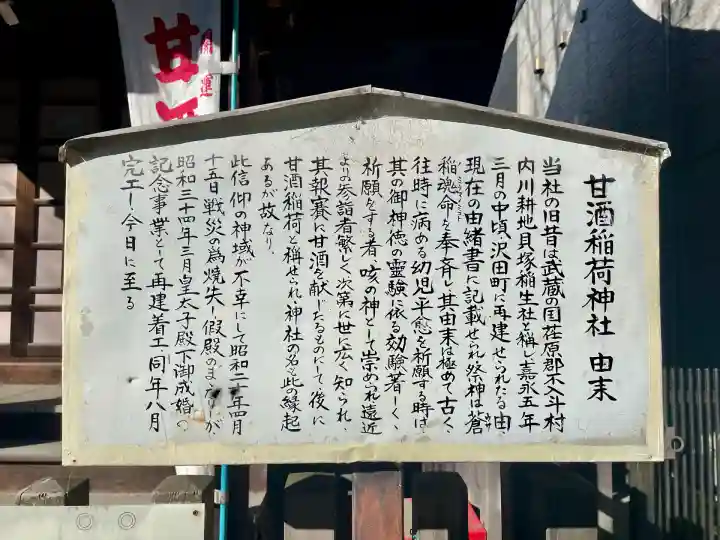 甘酒稲荷神社 由来
当社の旧昔は武蔵の国荏原郡不入斗村
内川耕地貝塚稲生社と称し嘉永五年
三月の中頃、沢田町に再建せられたる由、
現在の由緒書に記載せられ祭神は蒼
稲魂命を奉斉し其由来は極めて古く、
往時に病める幼児平癒を祈願する時は
其の御神徳の霊験に依る効験著しく、
祈願をする者、咳の神として崇められ遠近
よりの参詣者繁しく次第に世に広く知られ、
其報賽に甘酒を献じたるものにて、後に
甘酒稲荷と称せられ、神社の名と此の縁起
あるが故なり、
此信仰の神域が不幸にして昭和二十年四月
十五日戦災の為焼失し假殿のまゝなりしが、
昭和三十四年三月皇太子殿下御成婚の
記念事業として再建着工、同年八月
完工し、今日に至る
開運
甘酒